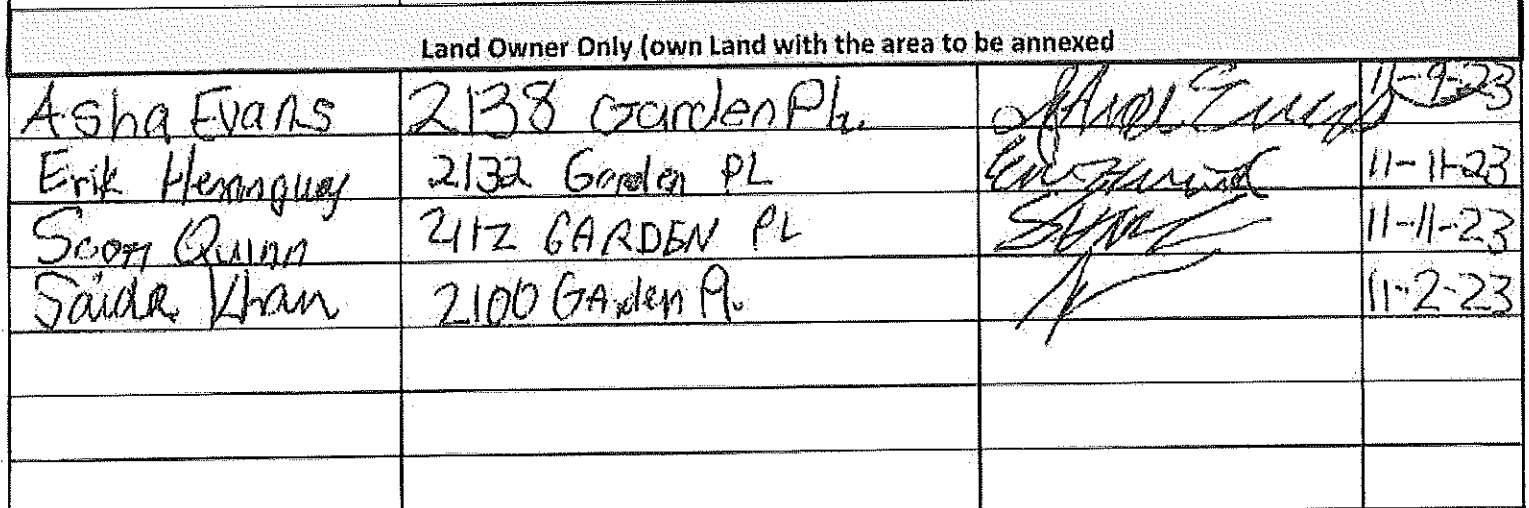 Land Owner Only (own Land with the area to be annexed
Asha Evans 2138 Garden Pl. 11-9-23
Erik 2132 Garden PL 11-11-23
Scott Quinn 2112 GARDEN PL 11-11-23
Saida Khan 2100 GArden Pl. 11-2-23